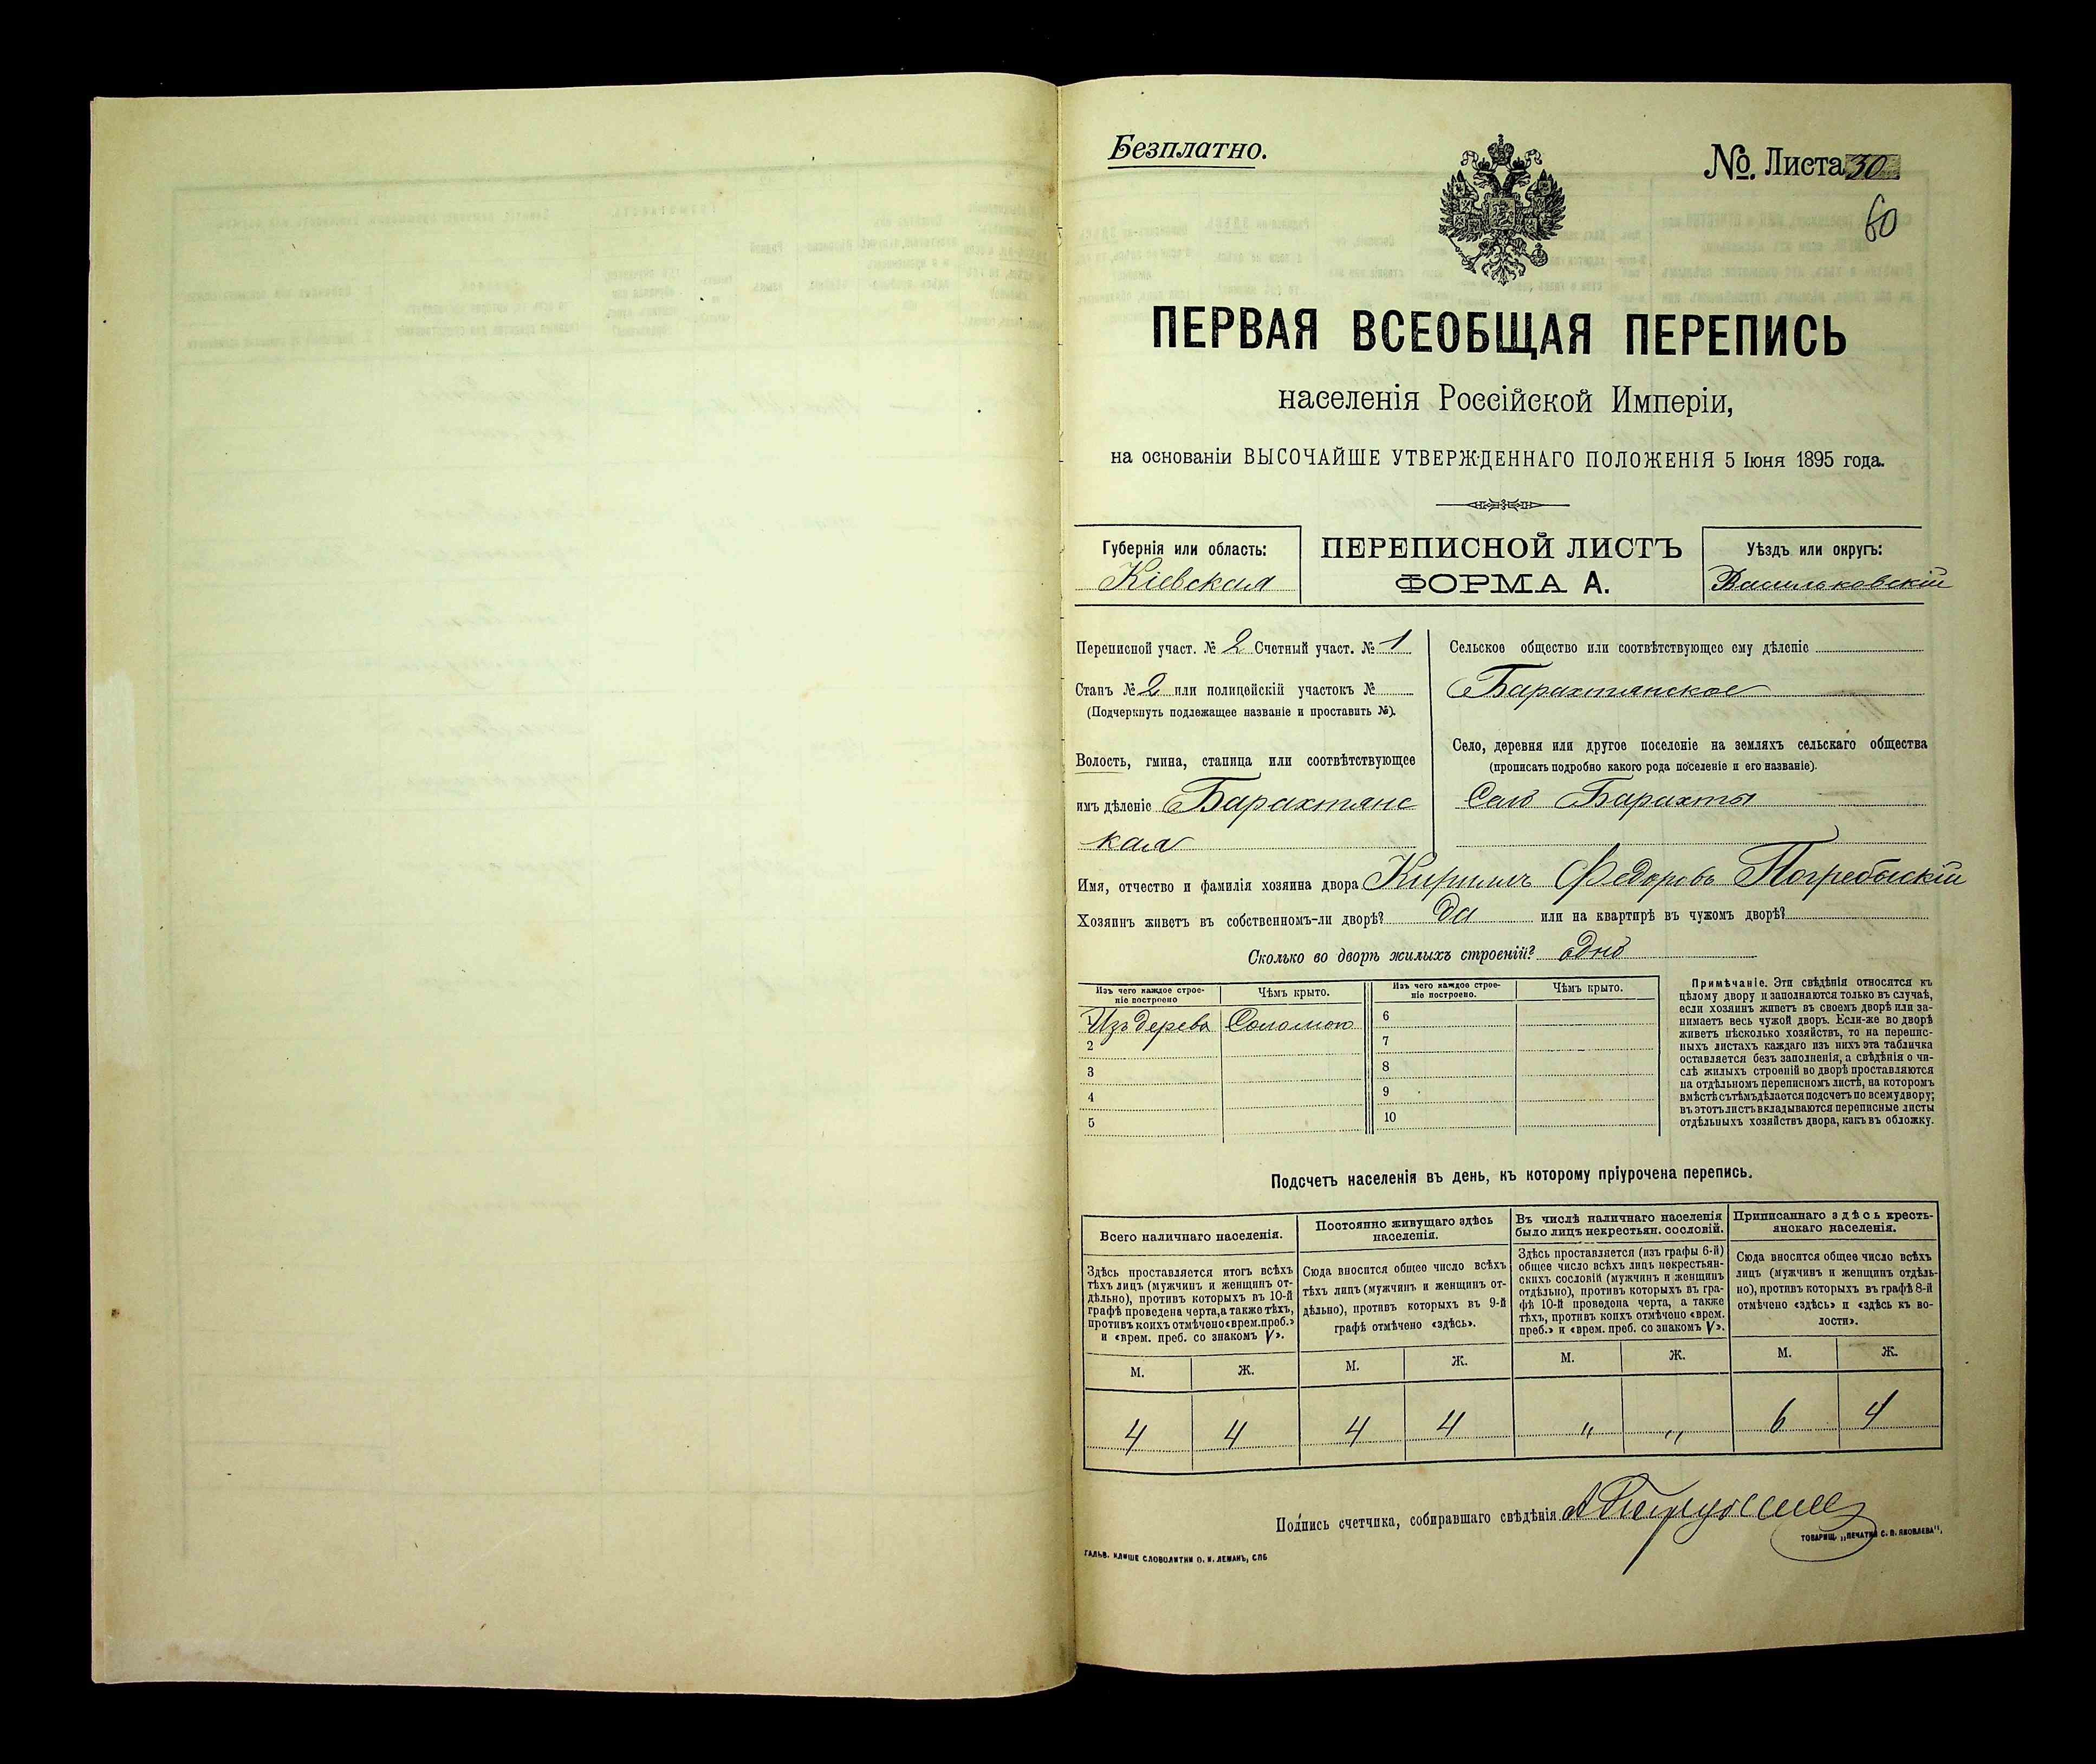 Безплатно.
№. Листа 30
60
ПЕРВАЯ ВСЕОБЩАЯ ПЕРЕПИСЬ
населенія Россійской Имперіи,
на основаніи ВЫСОЧАЙШЕ УТВЕРЖДЕННАГО ПОЛОЖЕНІЯ 5 Іюня 1895 года.
Губернія или область:
Кіевская
ПЕРЕПИСНОЙ ЛИСТЪ
ФОРМА А.
Уѣздъ или округъ:
Васильковскій
Переписной участ. № 2 Счетный участ. № 1
Станъ № 2 или полицейскій участокъ №
(Подчеркнуть подлежащее названіе и проставить №).
Волость, гмина, станица или соотвѣтствующее
имъ дѣленіе Барахтянс
кая
Сельское общество или соотвѣтствующее ему дѣленіе
Барахтянское
Село, деревня или другое поселеніе на земляхъ сельскаго общества
(прописать подробно какого рода поселеніе и его названіе).
Село Барахты
Имя, отчество и фамилія хозяина двора Кириллъ Федоровъ Погребыскій
Хозяинъ живетъ въ собственномъ-ли дворѣ? Да или на квартирѣ въ чужомъ дворѣ?
Сколько во дворѣ жилыхъ строеній? одно
Изъ чего каждое строе-
ніе построено
Чѣмъ крыто.
Изъ чего каждое строе-
ніе построено.
Чѣмъ крыто.
1 Изъ дерева Соломою
2
3
4
5
6
7
8
9
10
Примѣчаніе. Эти свѣдѣнія относятся къ
цѣлому двору и заполняются только въ случаѣ,
если хозяинъ живетъ въ своемъ дворѣ или за-
нимаетъ весь чужой дворъ. Если-же во дворѣ
живетъ нѣсколько хозяйствъ, то на перепис-
ныхъ листахъ каждаго изъ нихъ эта табличка
оставляется безъ заполненія, а свѣдѣнія о чи-
слѣ жилыхъ строеній во дворѣ проставляются
на отдѣльномъ переписномъ листѣ, на которомъ
вмѣстѣ съ тѣмъ дѣлается подсчетъ по всему двору;
въ этотъ листъ вкладываются переписные листы
отдѣльныхъ хозяйствъ двора, какъ въ обложку.
Подсчетъ населенія въ день, къ которому пріурочена перепись.
Всего наличнаго населенія.
Здѣсь проставляется итогъ всѣхъ
тѣхъ лицъ (мужчинъ и женщинъ от-
дѣльно), противъ которыхъ въ 10-й
графѣ проведена черта, а также тѣхъ,
противъ коихъ отмѣчено «врем. преб.»
и «врем. преб. со знакомъ V».
М. Ж.
4 4
Постоянно живущаго здѣсь
населенія.
Сюда вносится общее число всѣхъ
тѣхъ лицъ (мужчинъ и женщинъ от-
дѣльно), противъ которыхъ въ 9-й
графѣ отмѣчено «здѣсь».
М. Ж.
4 4
Въ числѣ наличнаго населенія
было лицъ некрестьян. сословій.
Здѣсь проставляется (изъ графы 6-й)
общее число всѣхъ лицъ некрестьян-
скихъ сословій (мужчинъ и женщинъ
отдѣльно), противъ которыхъ въ гра-
фѣ 10-й проведена черта, а также
тѣхъ, противъ коихъ отмѣчено «врем.
преб.» и «врем. преб. со знакомъ V».
М. Ж.
" "
Приписаннаго здѣсь кресть-
янскаго населенія.
Сюда вносится общее число всѣхъ
лицъ (мужчинъ и женщинъ отдѣль-
но), противъ которыхъ въ графѣ 8-й
отмѣчено «здѣсь» и «здѣсь къ во-
лости».
М. Ж.
6 4
Подпись счетчика, собиравшаго свѣдѣнія
ГАЛЬВ. КЛИШЕ СЛОВОЛИТНИ О. И. ЛЕМАНЪ, СПБ
ТОВАРИЩ. „ПЕЧАТНИ С. П. ЯКОВЛЕВА".